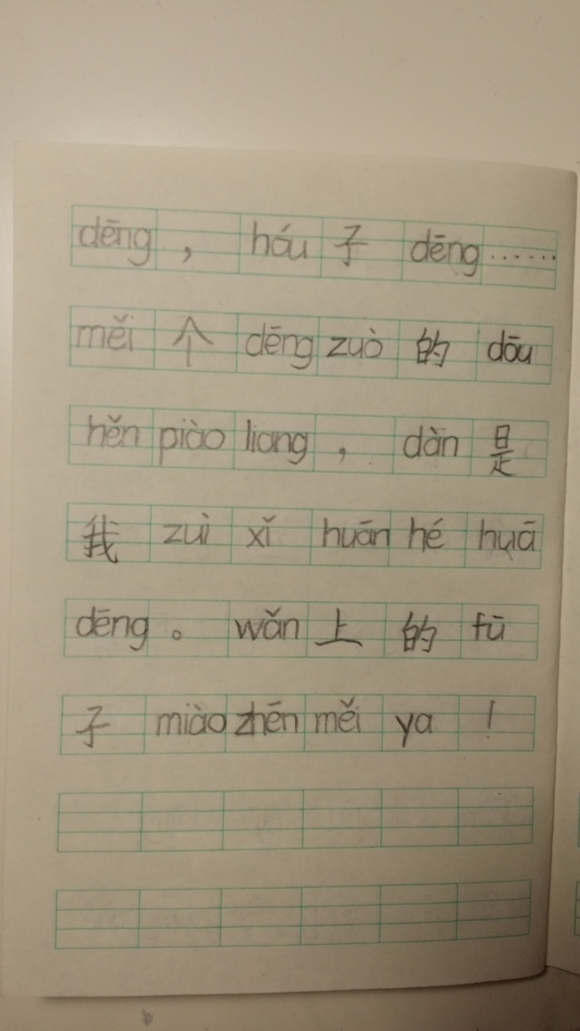 dēng , hóu 子 dēng ……
měi 个 dēng zuò 的 dōu
hěn piào liang , dàn 是
我 zuì xǐ huān hé huā
dēng 。 wǎn 上 的 fū
子 miào zhēn měi ya !